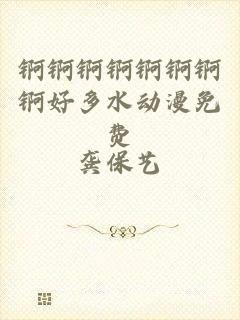 锕锕锕锕锕锕锕
锕好多水动漫免
费
龚保艺